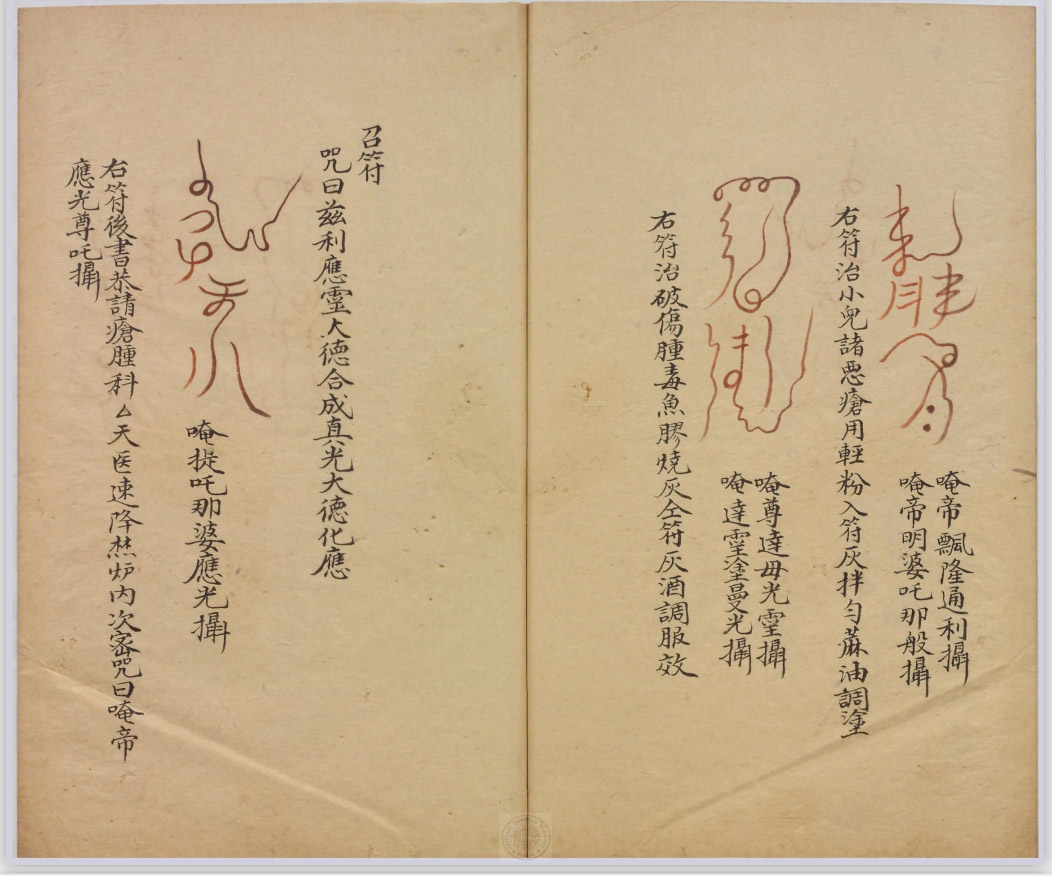 唵帝飄隆通利攝
唵帝明婆吒那般攝
右符治小兒諸惡瘡用輕粉入符灰拌勻蔴油調塗
唵尊達毋光霊攝
唵達霊塗曼光攝
右符治破傷腫毒魚膠燒灰仝符灰酒調服效
召符
咒曰兹利應霊大德合成真光大德化應
唵提吒那婆應光攝
右符後書恭請瘡腫科厶天医速降焚炉内次密咒曰唵帝
應光尊吒攝